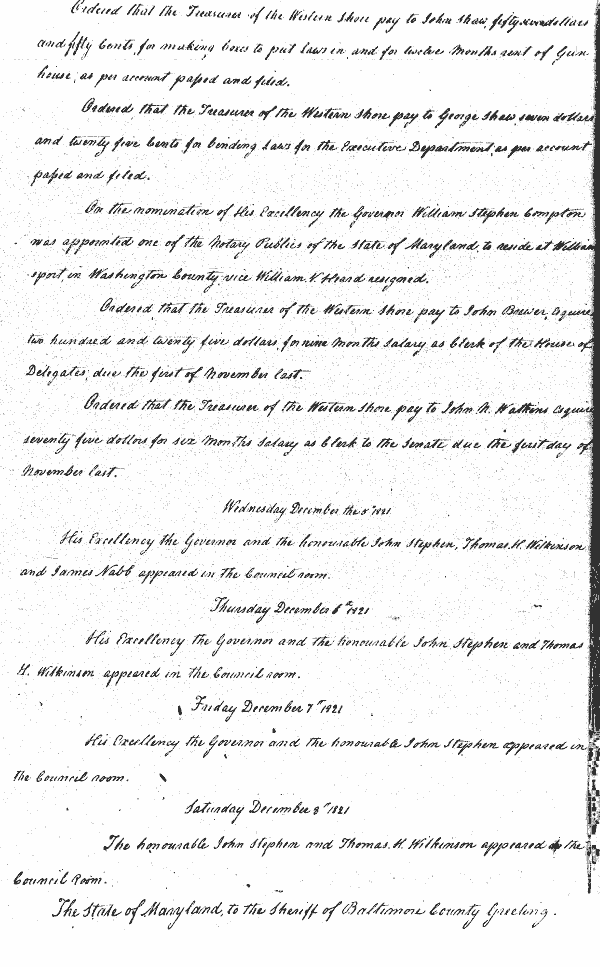 Ordered that the Treasurer of the Western Shore pay to John Shaw, fifty seven dollars
and fifty Cents, for making boxes to put Laws in, and for twelve Months rent of Gun
house, as per account passed and filed.
Ordered, that the Treasurer of the Western Shore pay to George Shaw, seven dollars
and twenty five Cents for binding Laws for the Executive Department, as per account
passed and filed.
On the nomination of His Excellency the Governor William Stephen Compton
was appointed one of the Notary Publics of the State of Maryland, to reside at William
sport, in Washington County, vice William V. Heard resigned.
Ordered that the Treasurer of the Western Shore pay to John Brewer, Esquire
two hundred and twenty five dollars, for nine Months Salary as Clerk of the House of
Delegates, due the first of November last.
Ordered that the Treasurer of the Western Shore pay to John N. Watkins Esquire
seventy five dollars for six Months Salary as Clerk to the Senate due the first day of
November last.
Wednesday December the 5th 1821
His Excellency the Governor and the honourable John Stephen, Thomas H. Wilkinson
and James Nabb appeared in the Council room.
Thursday December 6th 1821
His Excellency the Governor and the honourable John Stephen and Thomas
H. Wilkinson appeared in the Council room.
Friday December 7th 1821
His Excellency the Governor and the honourable John Stephen appeared in
the Council room.
Saturday December 8th 1821
The honourable John Stephen and Thomas H. Wilkinson appeared in the
Council Room.
The State of Maryland, to the Sheriff of Baltimore County Greeting.